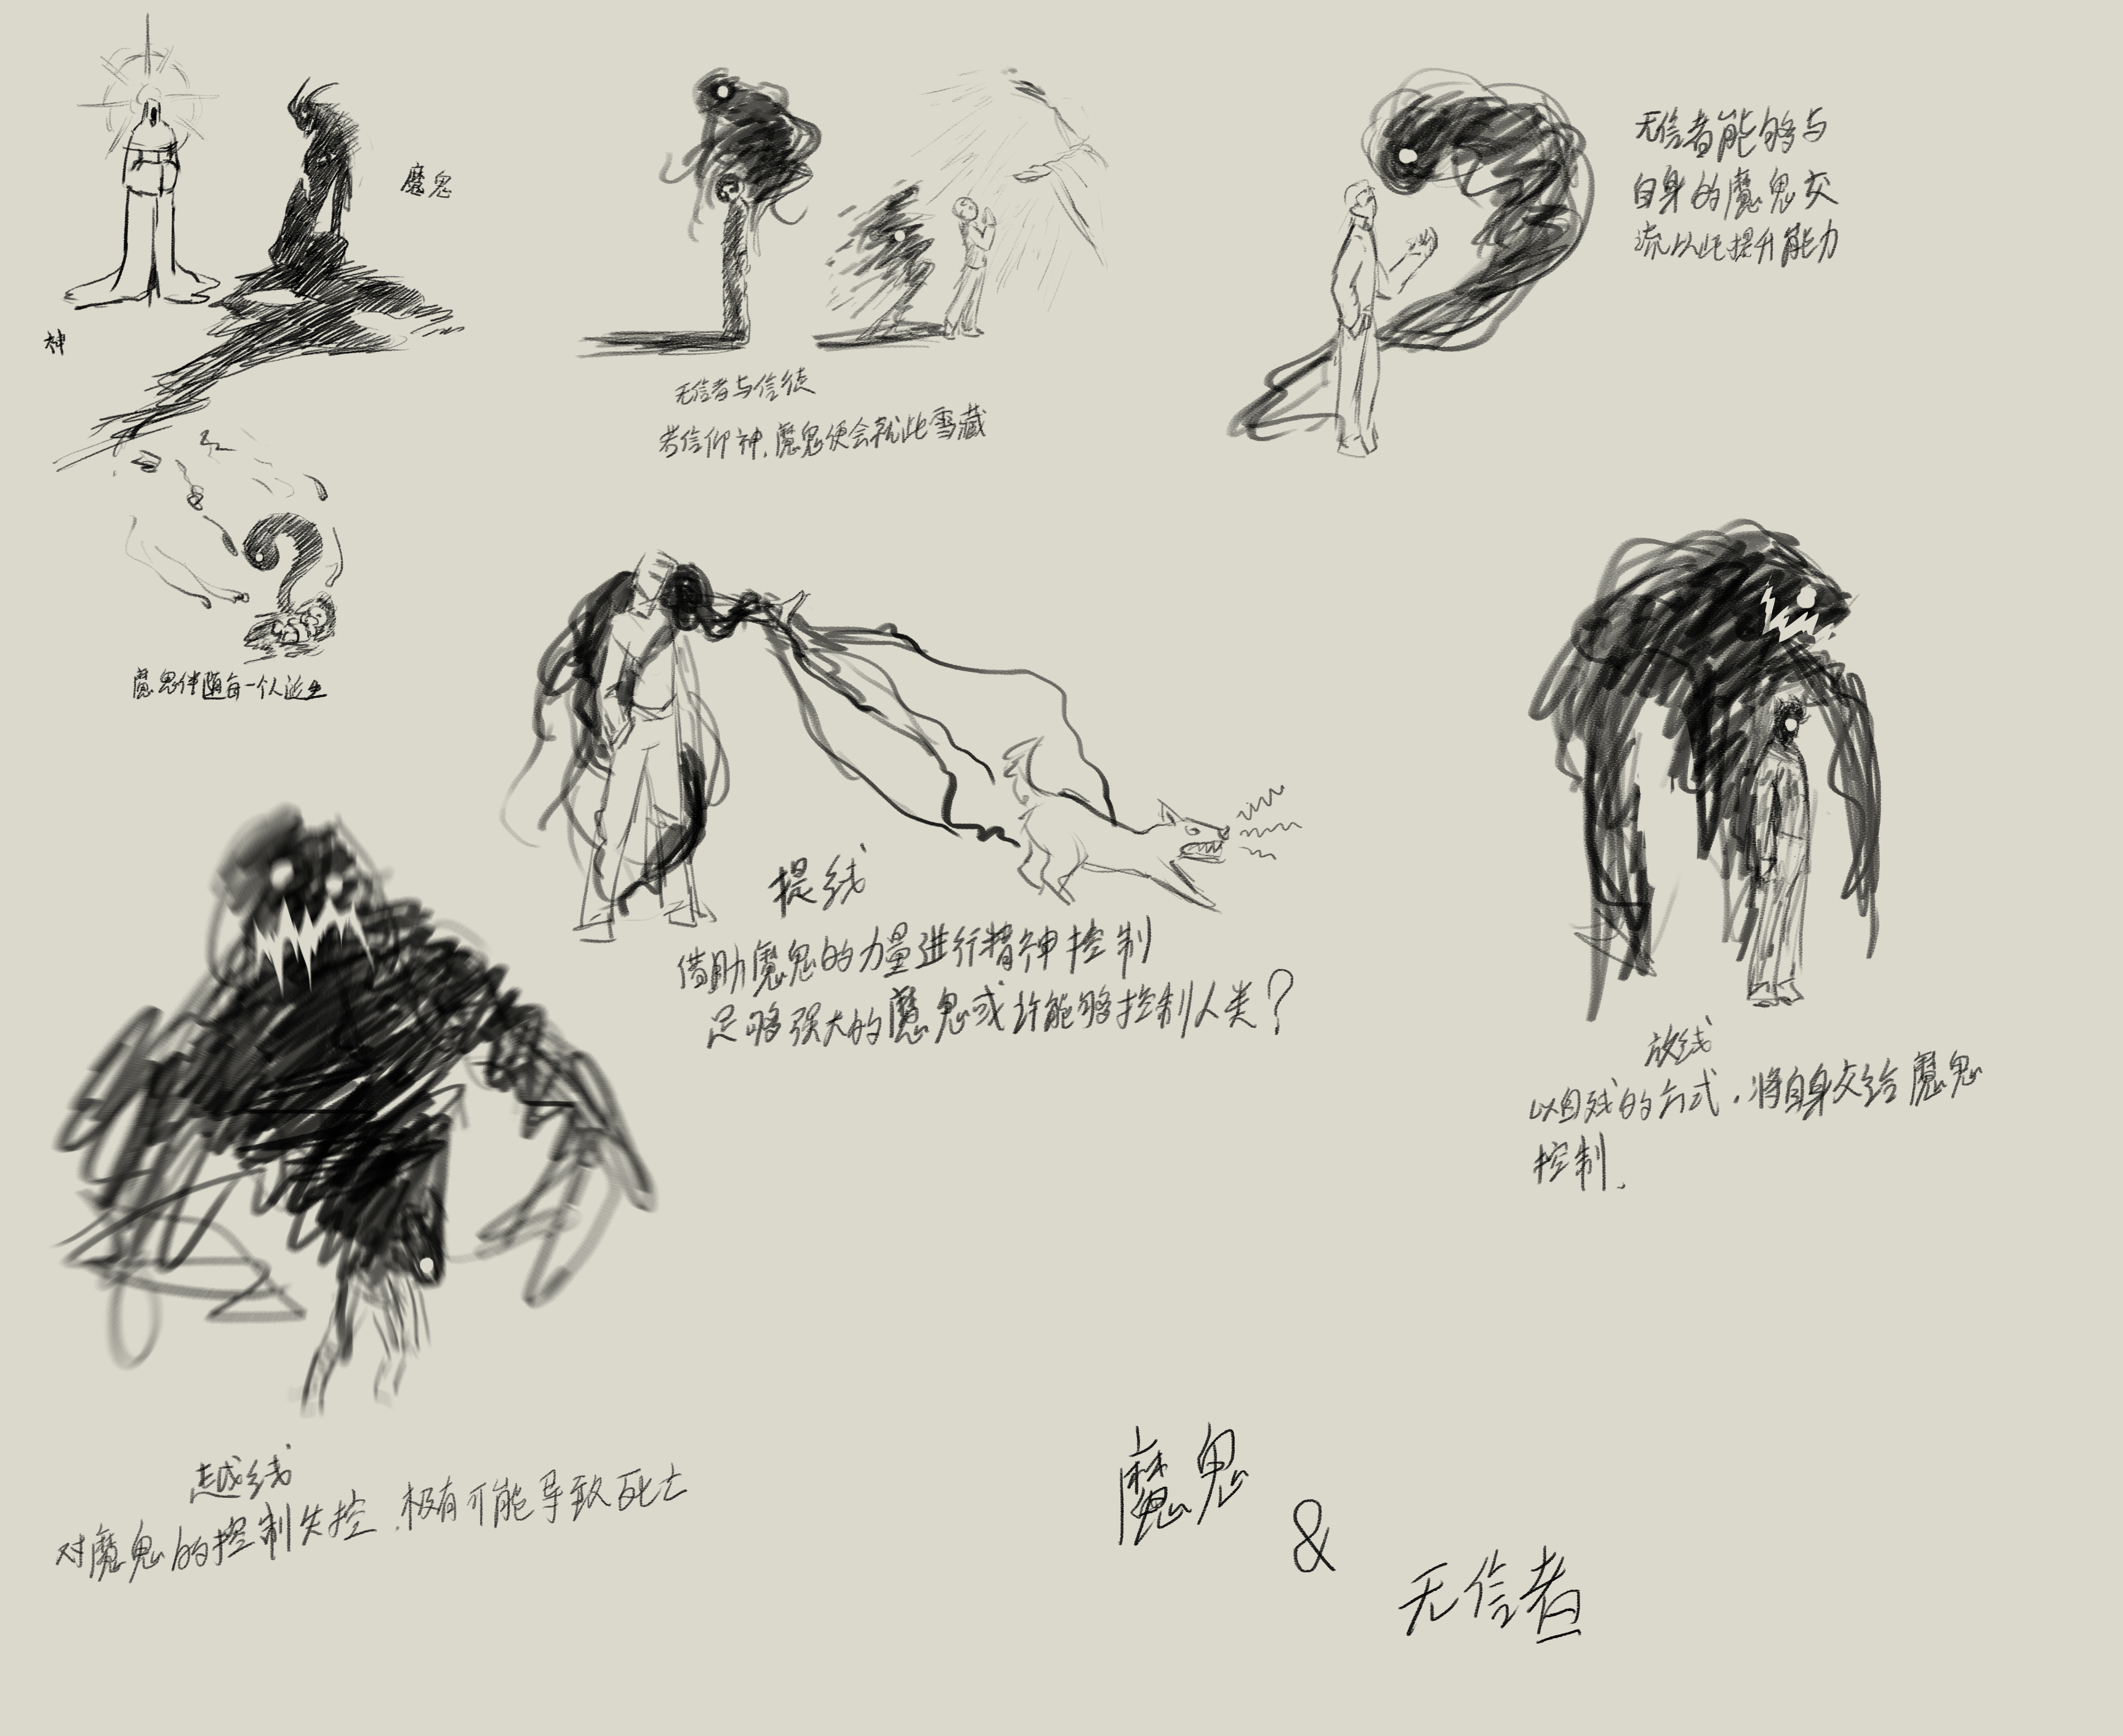 神
魔鬼
魔鬼伴随每一个人诞生
无信者与信徒
若信仰神,魔鬼便会就此雪藏
无信者能够与
自身的魔鬼交
流以此提升能力
提线
借助魔鬼的力量进行精神控制
足够强大的魔鬼或许能够控制人类?
放线
以自残的方式,将自身交给魔鬼
控制.
越线
对魔鬼的控制失控,极有可能导致死亡
魔鬼
&
无信者